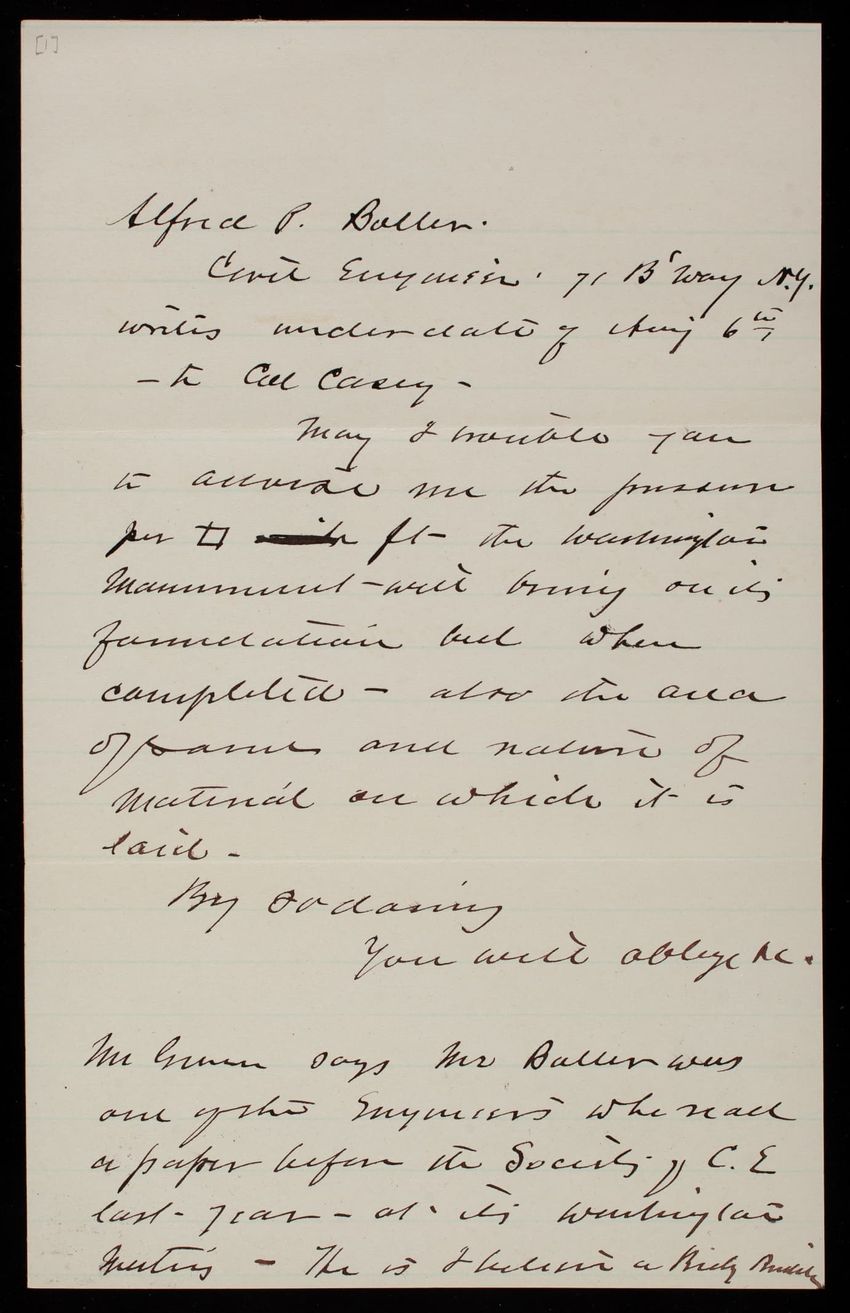 [1]
Alfred P. Boller.
Civil Engineer. 71 B'Way N.Y.
writes under date of Aug 6th
- to Col Casey -
May I trouble you
to advise me the pressure
per □ ft the Washington
Monument will bring on its
foundation bed when
completed - also the area
of same and nature of
material on which it is
laid -
By so doing
You will oblige &c.
Mr Green says Mr Boller was
one of the Engineers who read
a paper before the Society of C. E
last year - at its Washington
Meeting - He is I believe a Bridg Builder